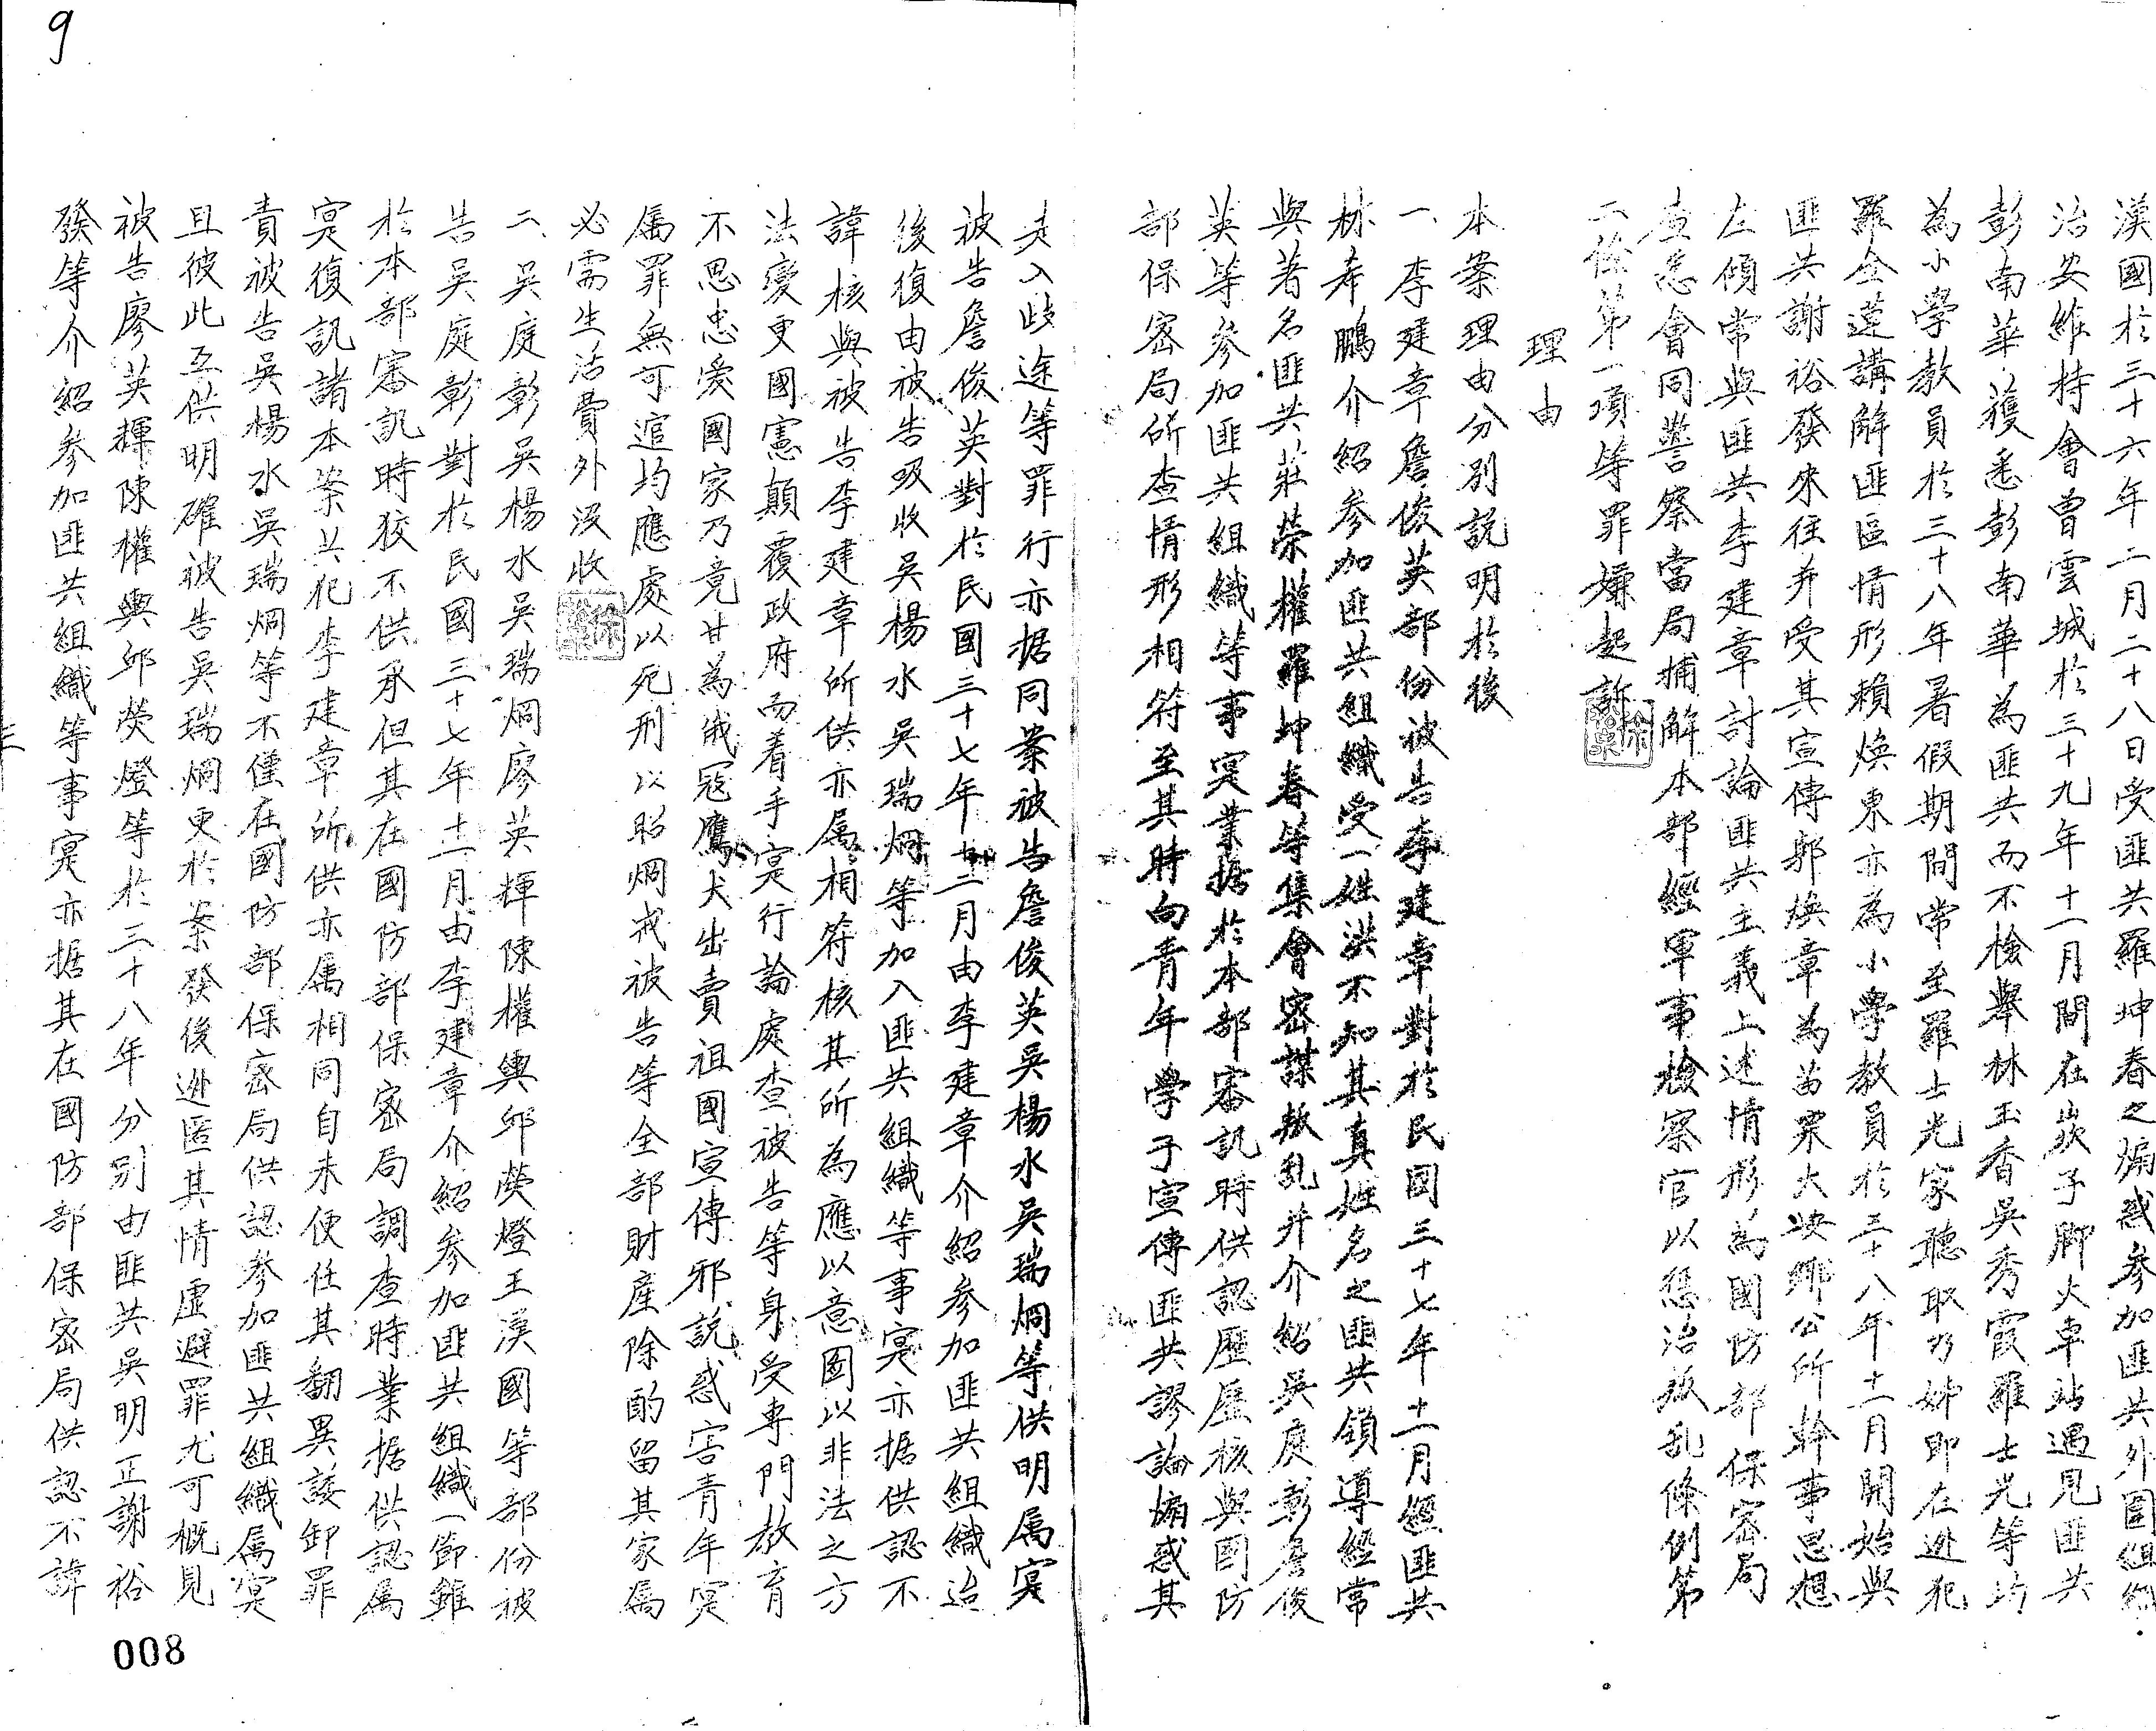 漢國於三十六年二月二十八日受匪共羅坤春之煽惑參加匪共外圍組織
治安維持會曾雲城於三十九年十一月間在崁子脚火車站遇見匪共
彭南華獲悉彭南華為匪共而不檢舉林玉香吳秀霞羅士光等均
為小學教員於三十八年暑假期間常至羅士光家聽取乃姊即在逃犯
羅金蓮講解匪區情形賴煥東亦為小學教員於三十八年十一月開始與
匪共謝裕發來往并受其宣傳郭煥章為苗栗大坡鄉公所幹事思想
左傾常與匪共李建章討論匪共主義上述情形為國防部保密局
查悉會同警察當局捕解本部經軍事檢察官以懲治叛乱條例第
二條第一項等罪嫌起訴
理由
本案理由分別說明於後
一、李建章詹俊英部份被告李建章對於民國三十七年十一月經匪共
林希鵬介紹參加匪共組織受一姓洪不知其真姓名之匪共領導經常
與著名匪共莊榮權羅坤春等集會密謀叛乱并介紹吳庭彰詹俊
英等參加匪共組織等事寔業据於本部審訊時供認歷歷核與國防
部保密局所查情形相符至其時向青年學子宣傳匪共謬論煽惑其
走入歧途等罪行亦据同案被告詹俊英吳楊水吳瑞烱等供明属寔
被告詹俊英對於民國三十七年十二月由李建章介紹參加匪共組織迨
後復由被告吸收吳楊水吳瑞烱等加入匪共組織等事寔亦据供認不
諱核與被告李建章所供亦属相符核其所為應以意圖以非法之方
法變更國憲顛覆政府而着手寔行論處查被告等身受專門教育
不思忠愛國家乃竟甘為俄寇鷹犬出賣祖國宣傳邪說惑害青年寔
属罪無可逭均應處以死刑以昭烱戒被告等全部財産除酌留其家属
必需生活費外沒收
二、吳庭彰吳楊水吳瑞烱廖英輝陳權興邱熒燈王漢國等部份被
告吳庭彰對於民國三十七年十一月由李建章介紹參加匪共組織一節雖
於本部審訊時狡不供承但其在國防部保密局調查時業据供認属
寔復訊諸本案共犯李建章所供亦属相同自未便任其翻異諉卸罪
責被告吳楊水吳瑞烱等不僅在國防部保密局供認參加匪共組織属寔
且彼此互供明確被告吳瑞烱更於案發後逃匿其情虛避罪尤可概見
被告廖英輝陳權興邱熒燈等於三十八年分別由匪共吳明正謝裕
發等介紹參加匪共組織等事寔亦据其在國防部保密局供認不諱
三
9
008